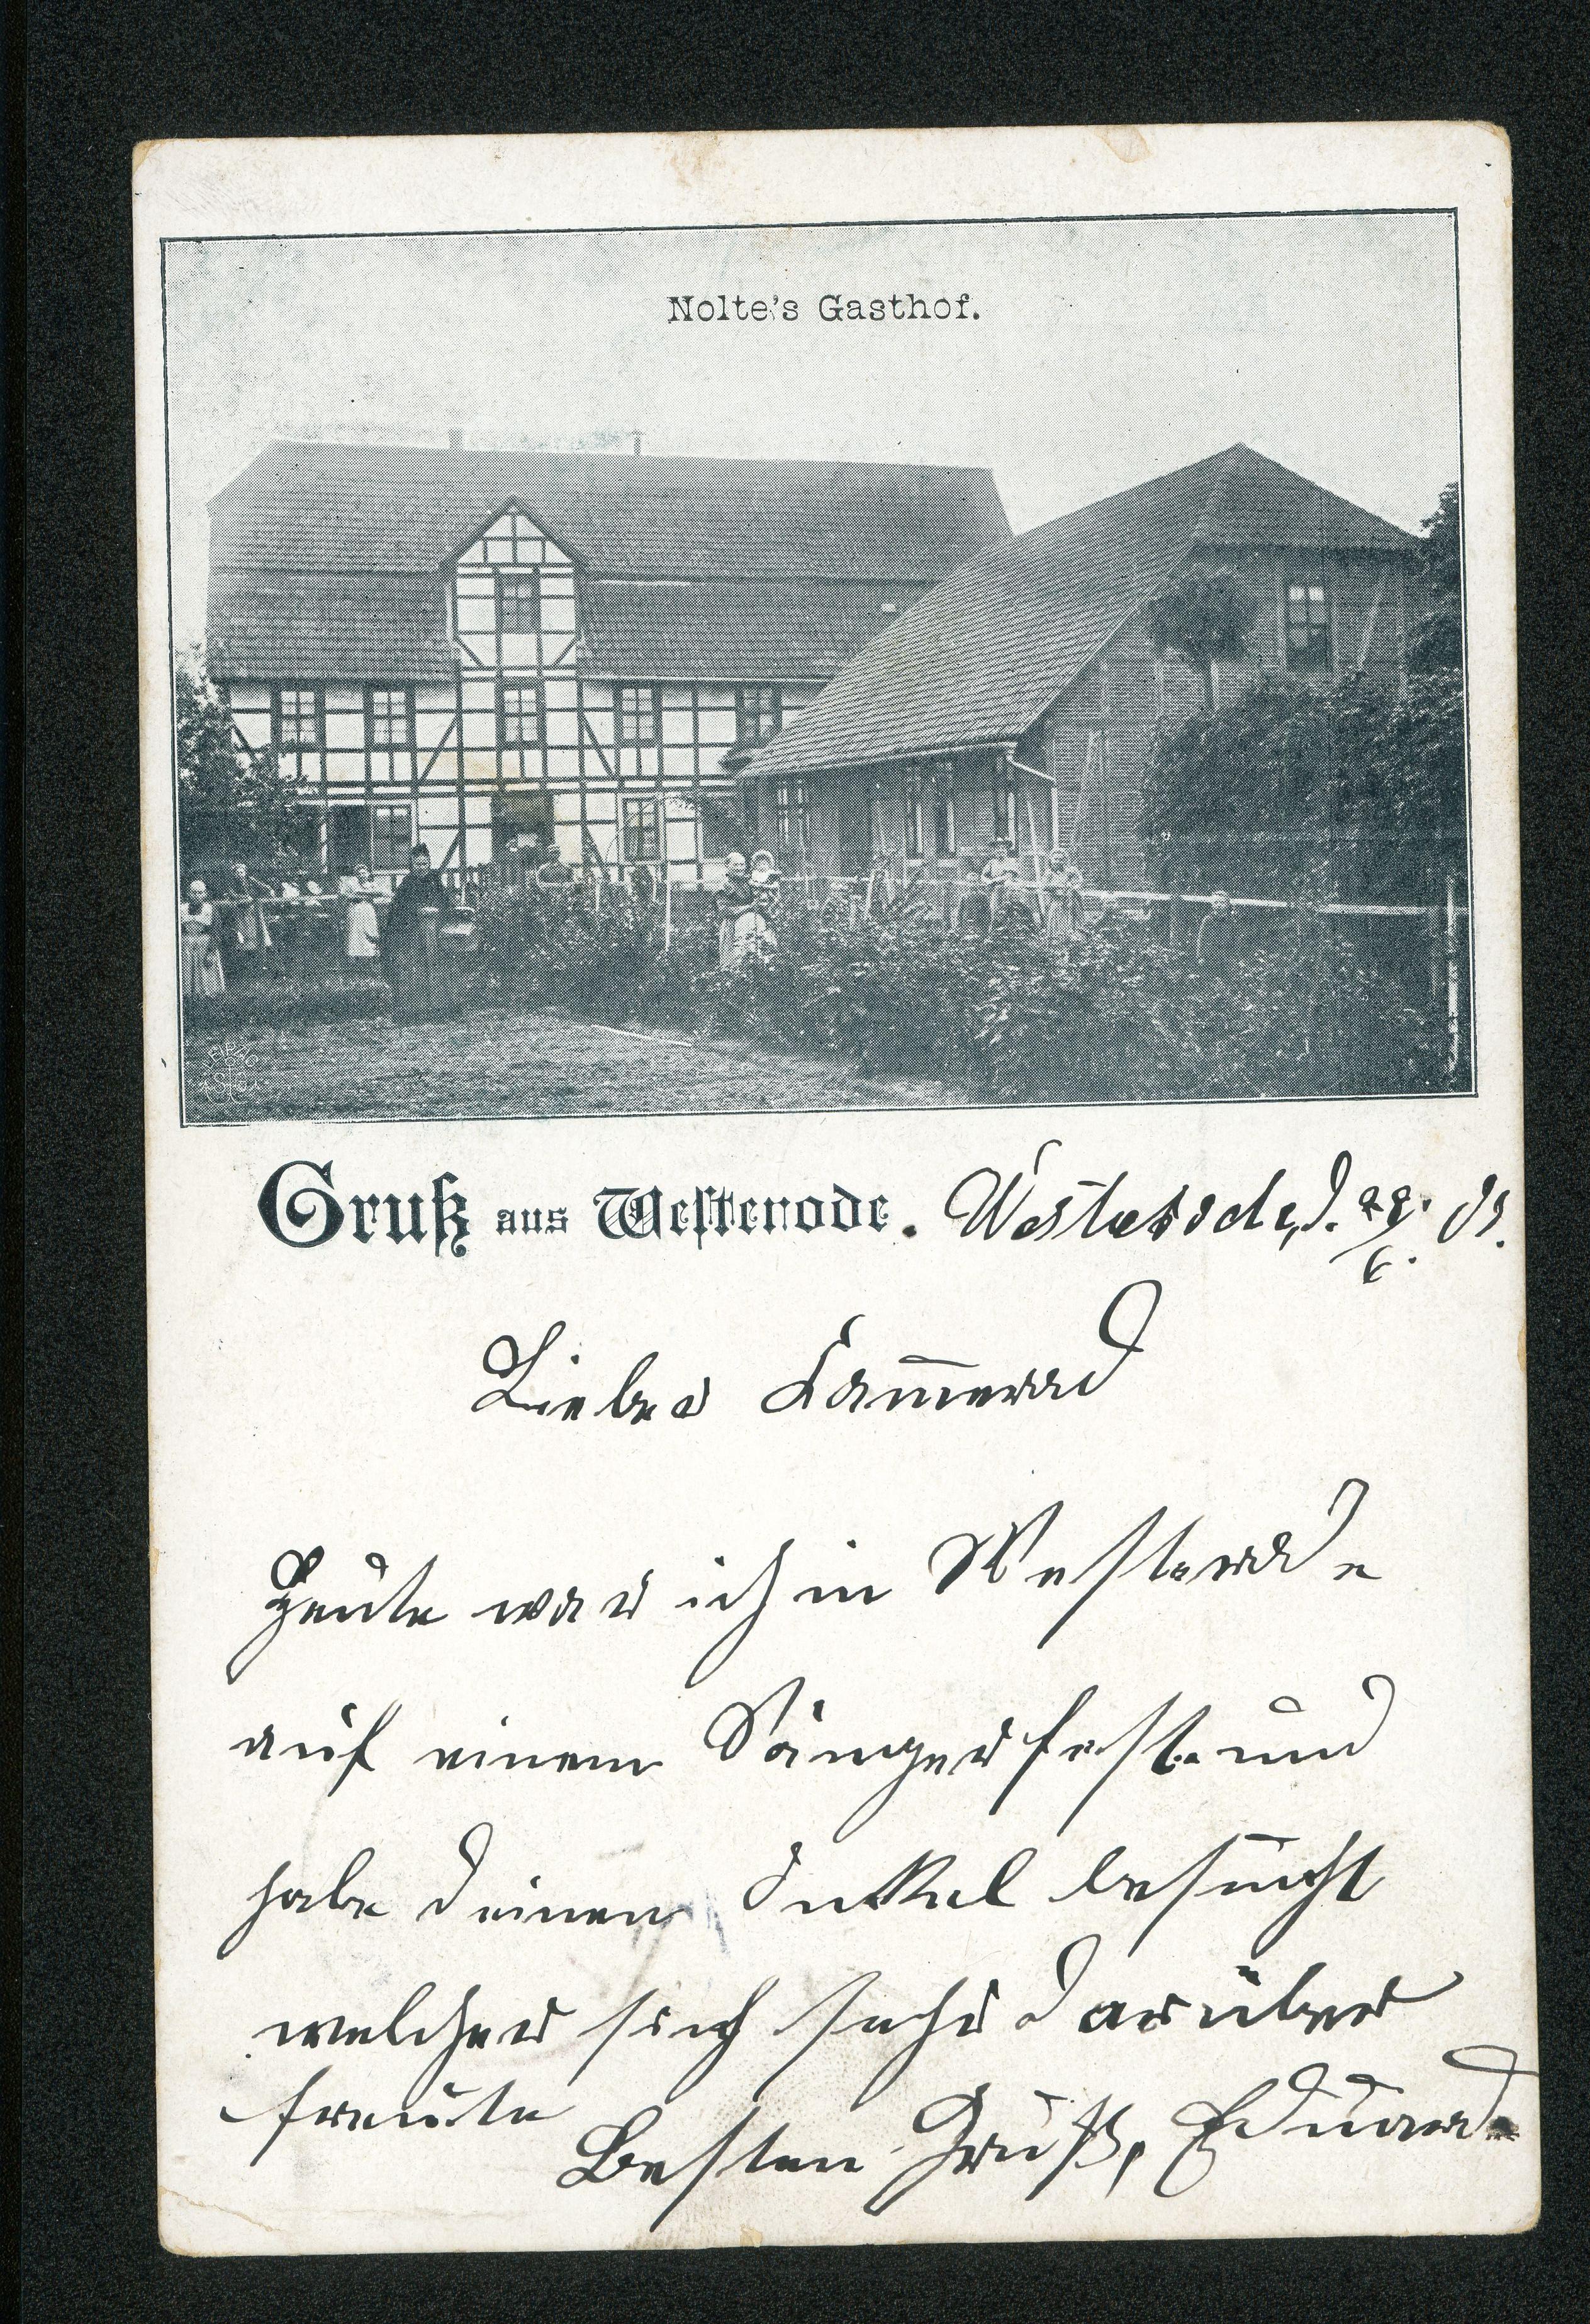 Nolte's Gasthof.
LEIPZIG
Gruß aus Westerode. Westerode, d.
6.
Lieber Kam̅erad
Heute war ich in Westerode
auf einem Sängerfest und
habe deinen Onkel besucht
welcher sich sehr darüber
freute
Besten Gruß, Eduard.